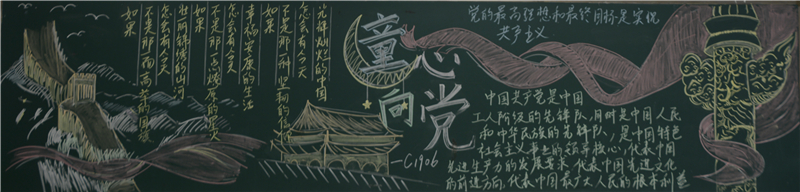 如果
不是那一面高高的国旗
怎会有今天
壮丽锦绣的山河
如果
不是那一
怎会有今天
幸福安康的生活
如果
不是那一种坚韧的
怎会有今天
光辉灿烂的中国
童心向党
C1906
党的最高理想和最终目标是实现
共产主义
中国共产党是中国
工人阶级的先锋队,同时是中国人民
和中华民族的先锋队,是中国特色
社会主义事业的领导核心,代表中国
先进生产力的发展要求,代表中国先进文化
的前进方向,代表中国最广大人民的根本利益